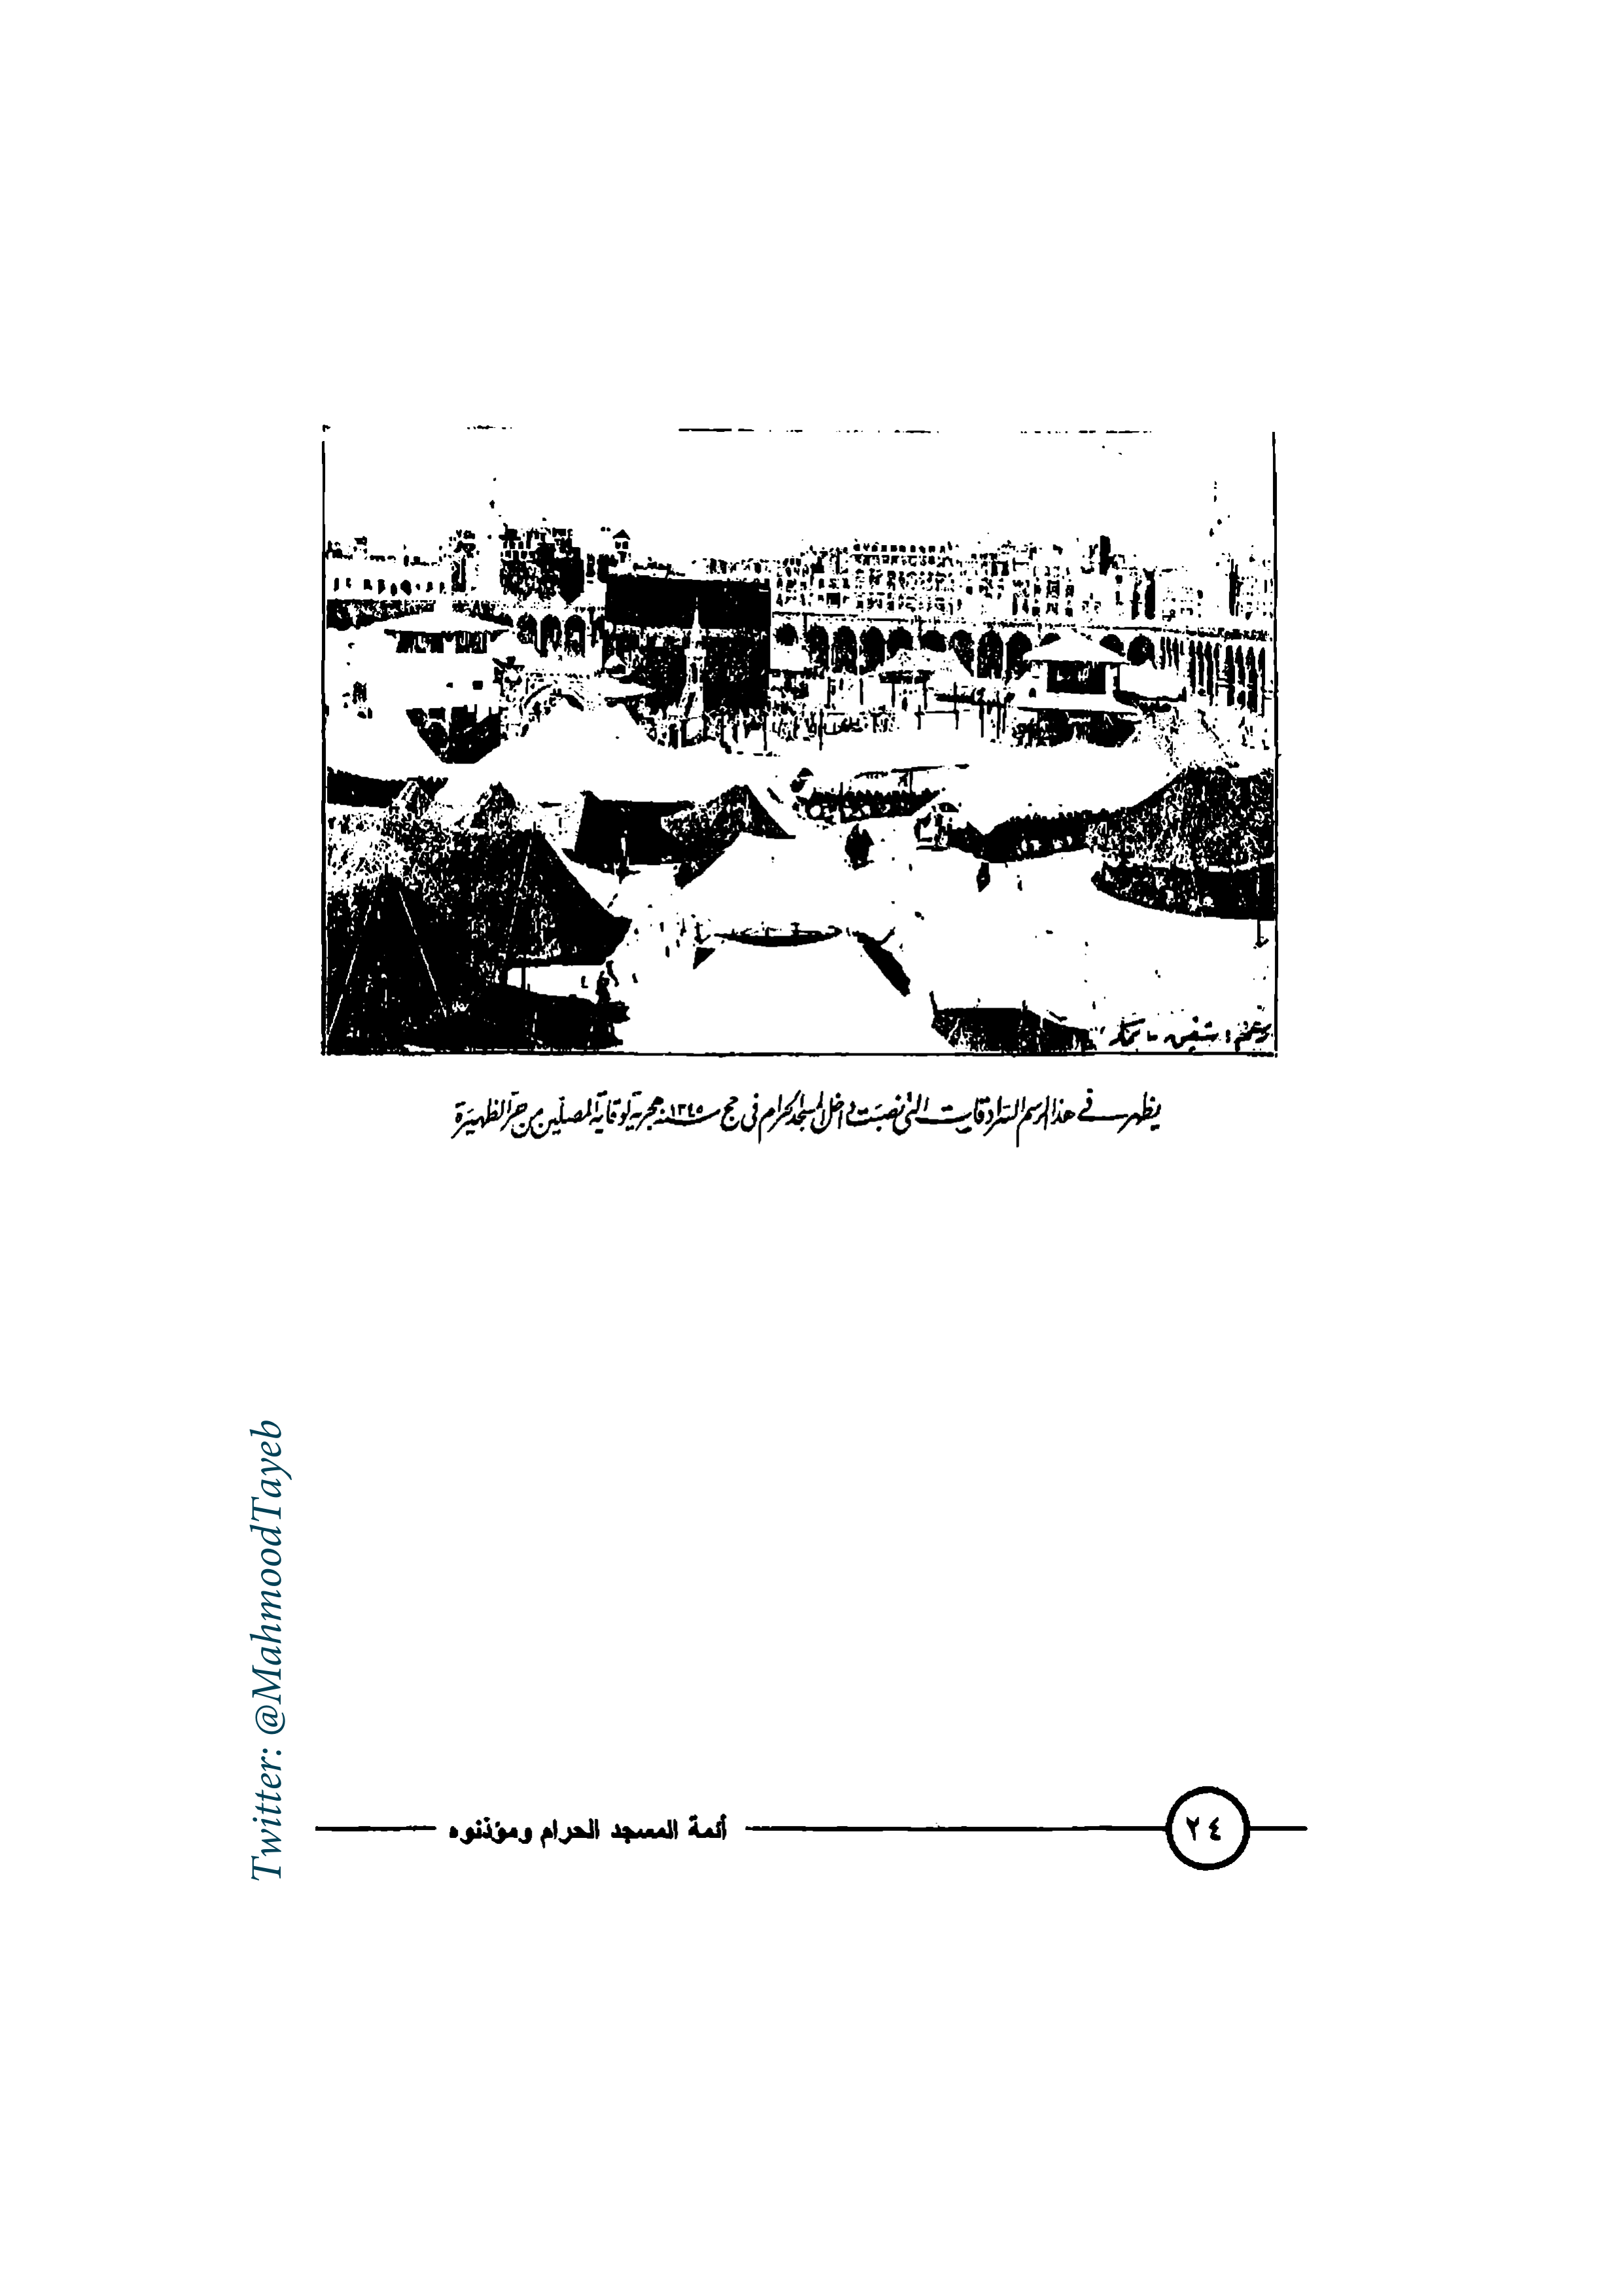 يظهر في هذا الرسم السرادقات التي نصبت داخل المسجد الحرام في حج سنة ١٣٤٥ هجرية لوقاية المصلين من حر الظهيرة
Twitter: @MahmoodTayeb
أئمة المسجد الحرام ومؤذنوه
٢٤